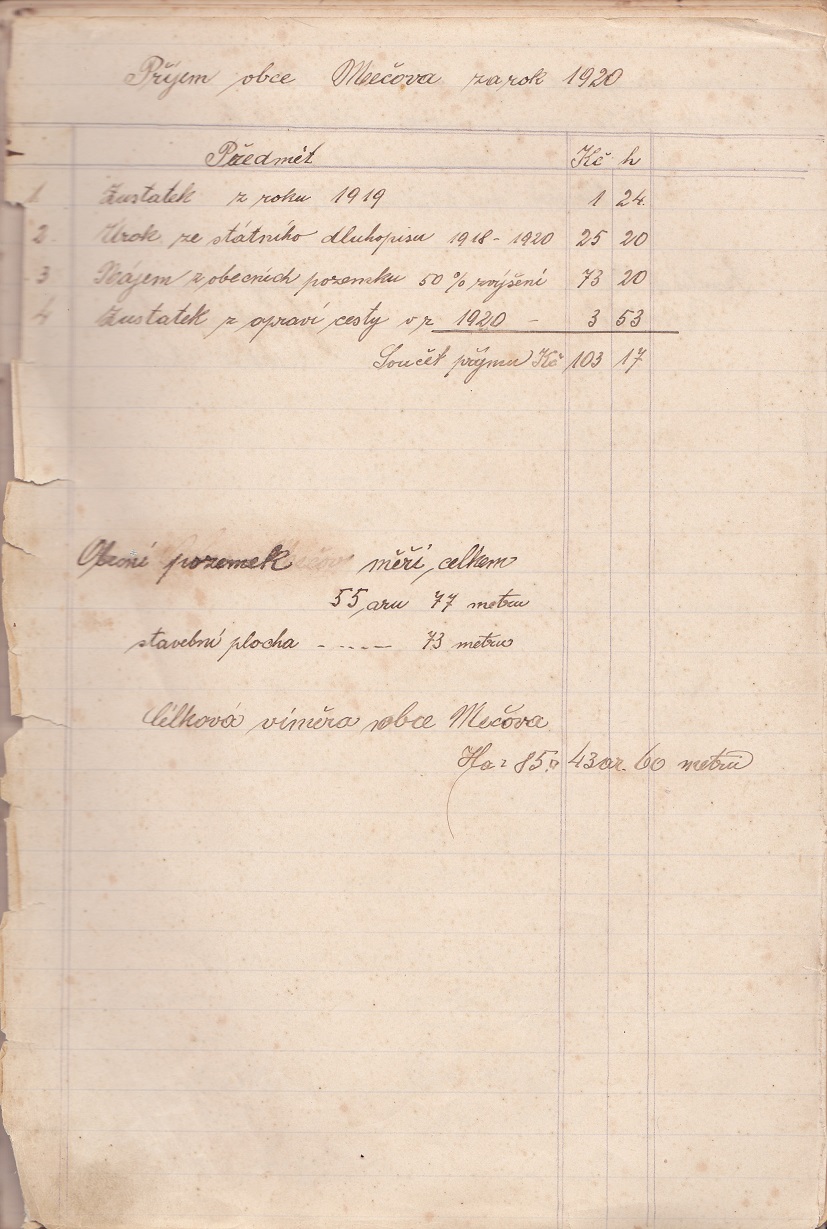 Příjem obce Mečova za rok 1920
Předmět Kč h
1 Zustatek z roku 1919 1 24
2 Urok ze státního dluhopisu 1918 - 1920 25 20
3 Nájem z obecních pozemku 50 % zvýšení 73 20
4 Zustatek z opraví cesty v r 1920 - 3 53
Součet příjmu Kč 103 17
Obecní pozemek měří celkem
55 aru 77 metru
stavební plocha - . . - - 73 metru
Célková viměra obce Mečova
Ha 85 43 ar. 60 metru